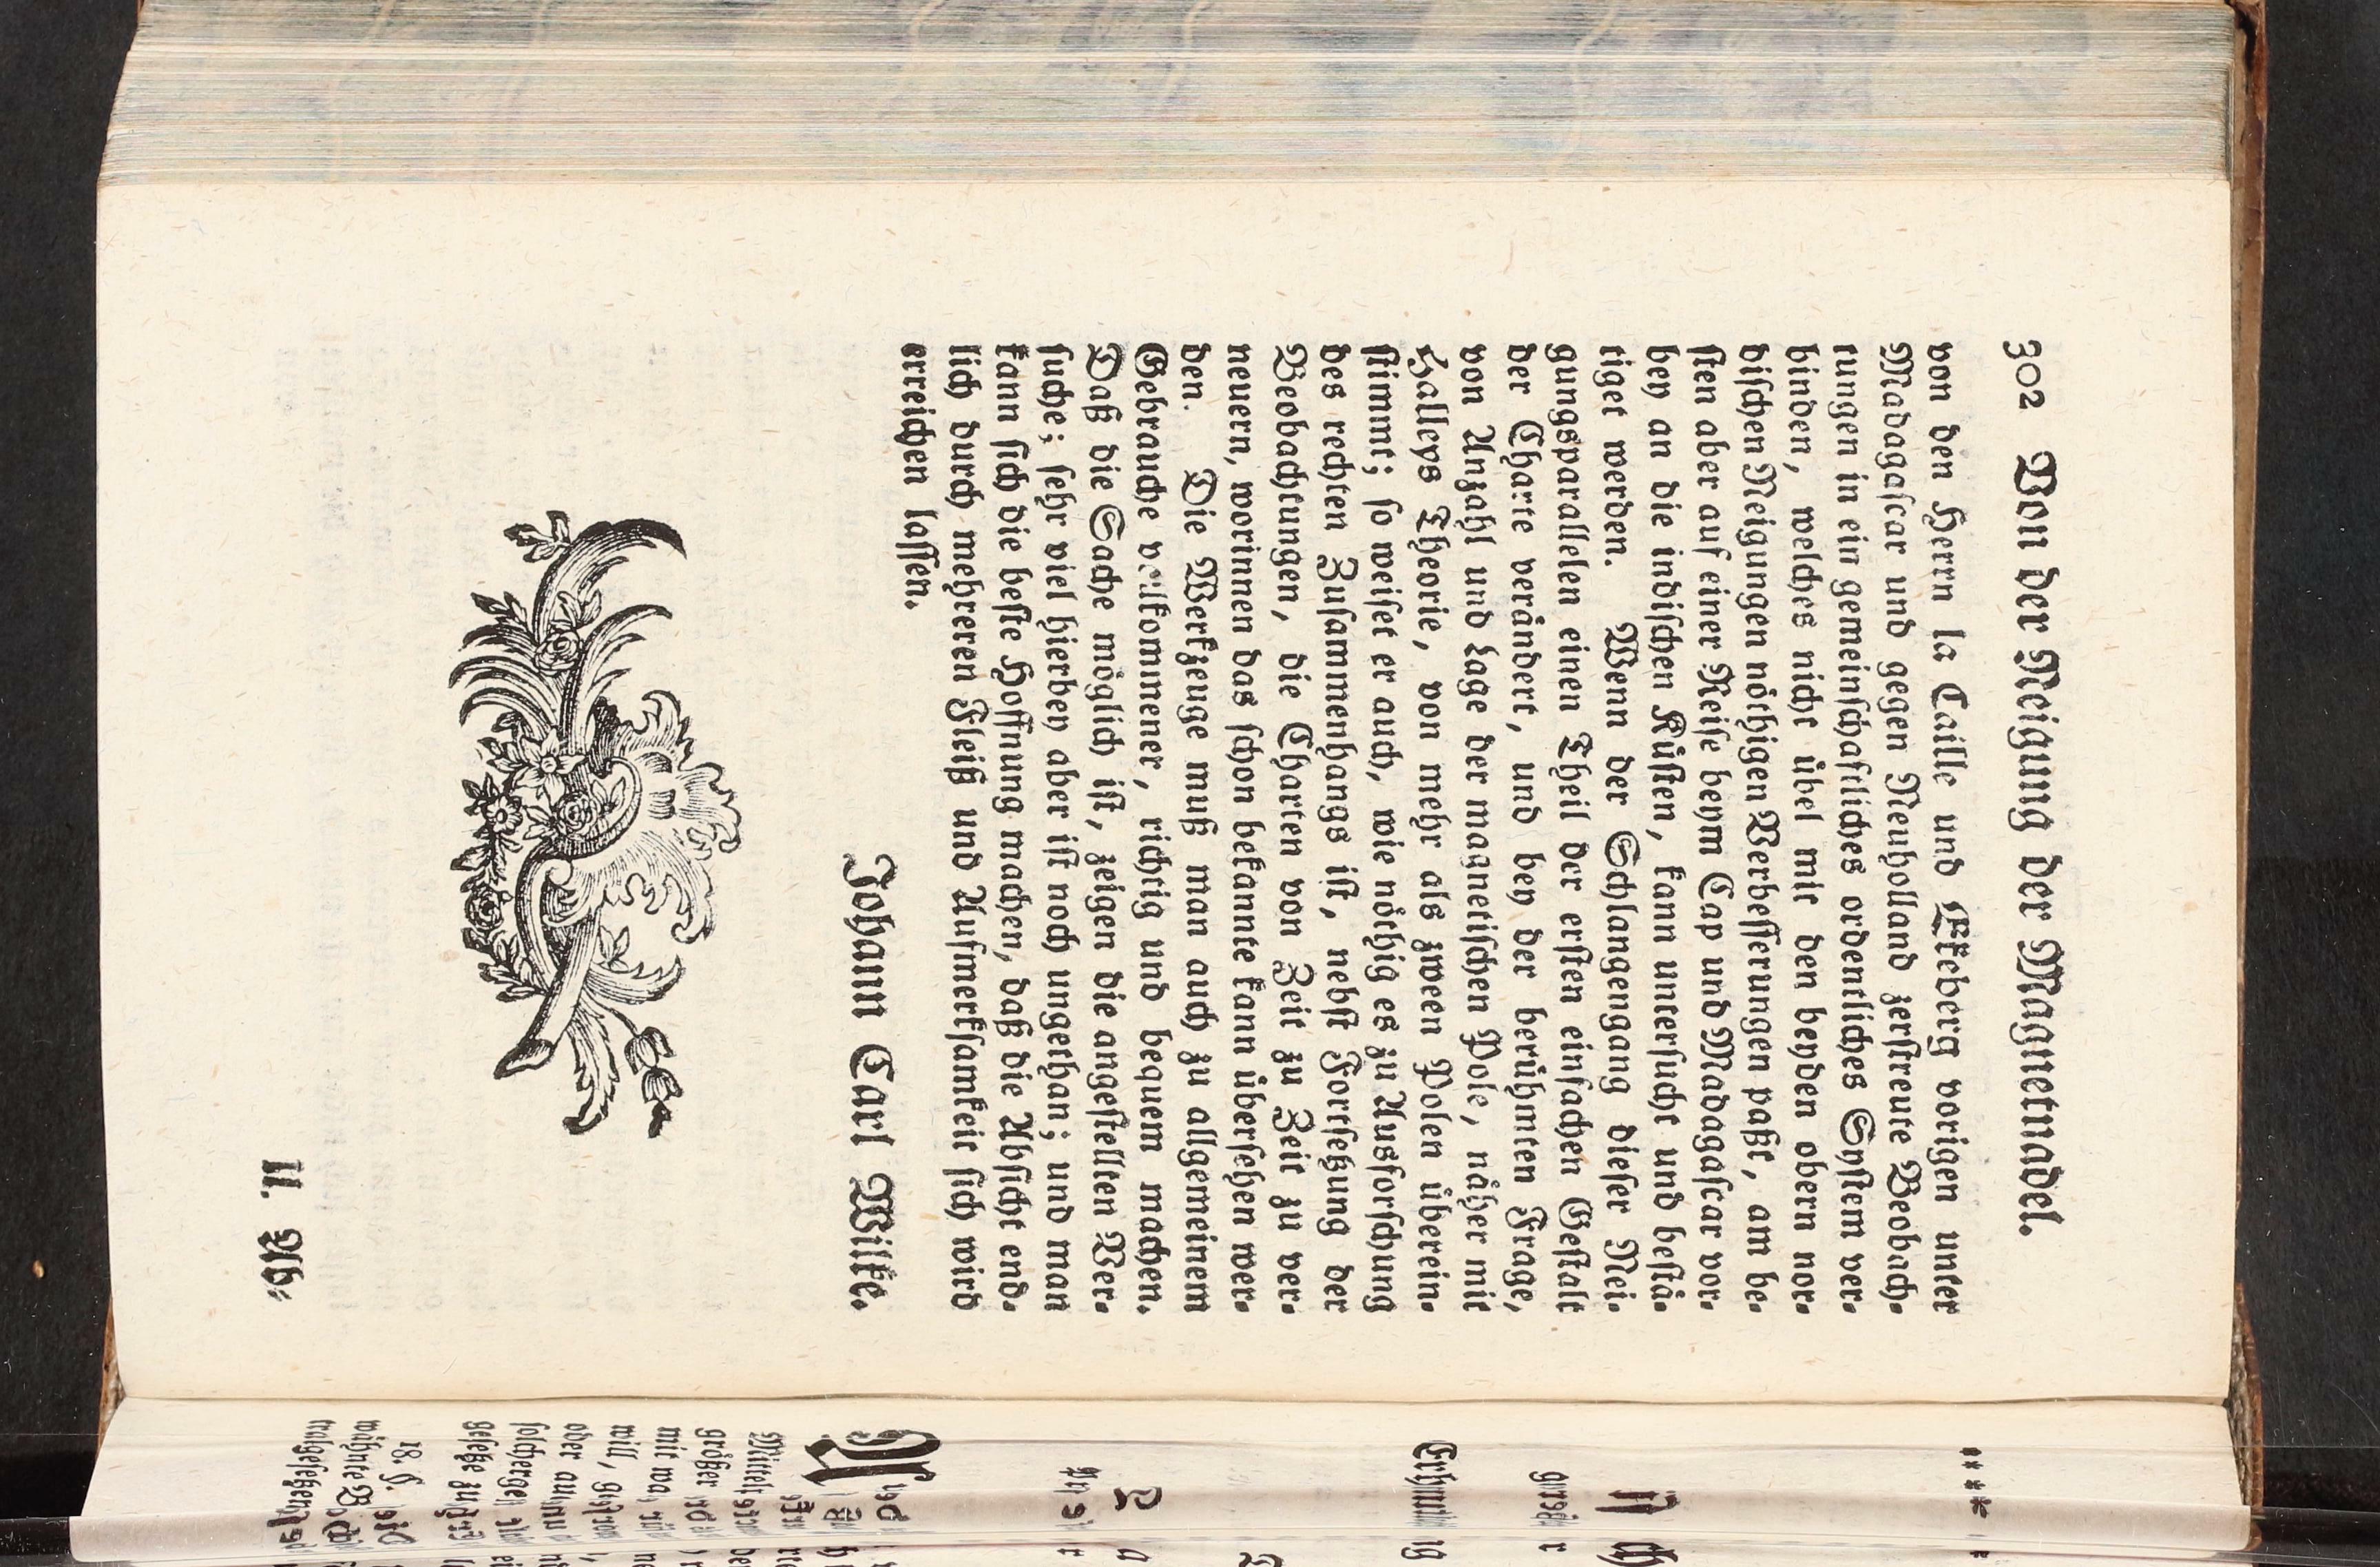 302 Von der Neigung der Magnetnadel.
von den Herrn la Caille und Ekeberg vorigen unter
Madagaſcar und gegen Neuholland zerſtreute Beobach-
tungen in ein gemeinſchaftliches ordentliches Syſtem ver-
binden, welches nicht übel mit den beyden obern nor-
diſchen Neigungen nöthigen Verbeſſerungen paßt, am be-
ſten aber auf einer Reiſe beym Cap und Madagaſcar vor-
bey an die indiſchen Küſten, kann unterſucht und beſtä-
tiget werden. Wenn der Schlangengang dieſer Nei-
gungsparallelen einen Theil der erſten einfachen Geſtalt
der Charte verändert, und bey der berühmten Frage,
von Anzahl und Lage der magnetiſchen Pole, näher mit
Halleys Theorie, von mehr als zween Polen überein-
ſtimmt; ſo weiſet er auch, wie nöthig es zu Ausforſchung
des rechten Zuſammenhangs iſt, nebſt Fortſetzung der
Beobachtungen, die Charten von Zeit zu Zeit zu ver-
neuern, worinnen das ſchon bekannte kann überſehen wer-
den. Die Werkzeuge muß man auch zu allgemeinem
Gebrauche vollkommener, richtig und bequem machen.
Daß die Sache möglich iſt, zeigen die angeſtellten Ver-
ſuche; ſehr viel hierbey aber iſt noch ungethan; und man
kann ſich die beſte Hoffnung machen, daß die Abſicht end-
lich durch mehreren Fleiß und Aufmerkſamkeit ſich wird
erreichen laſſen.
Johann Carl Wilke.
II. Ab-
****
größer
will,
oder
18. §.